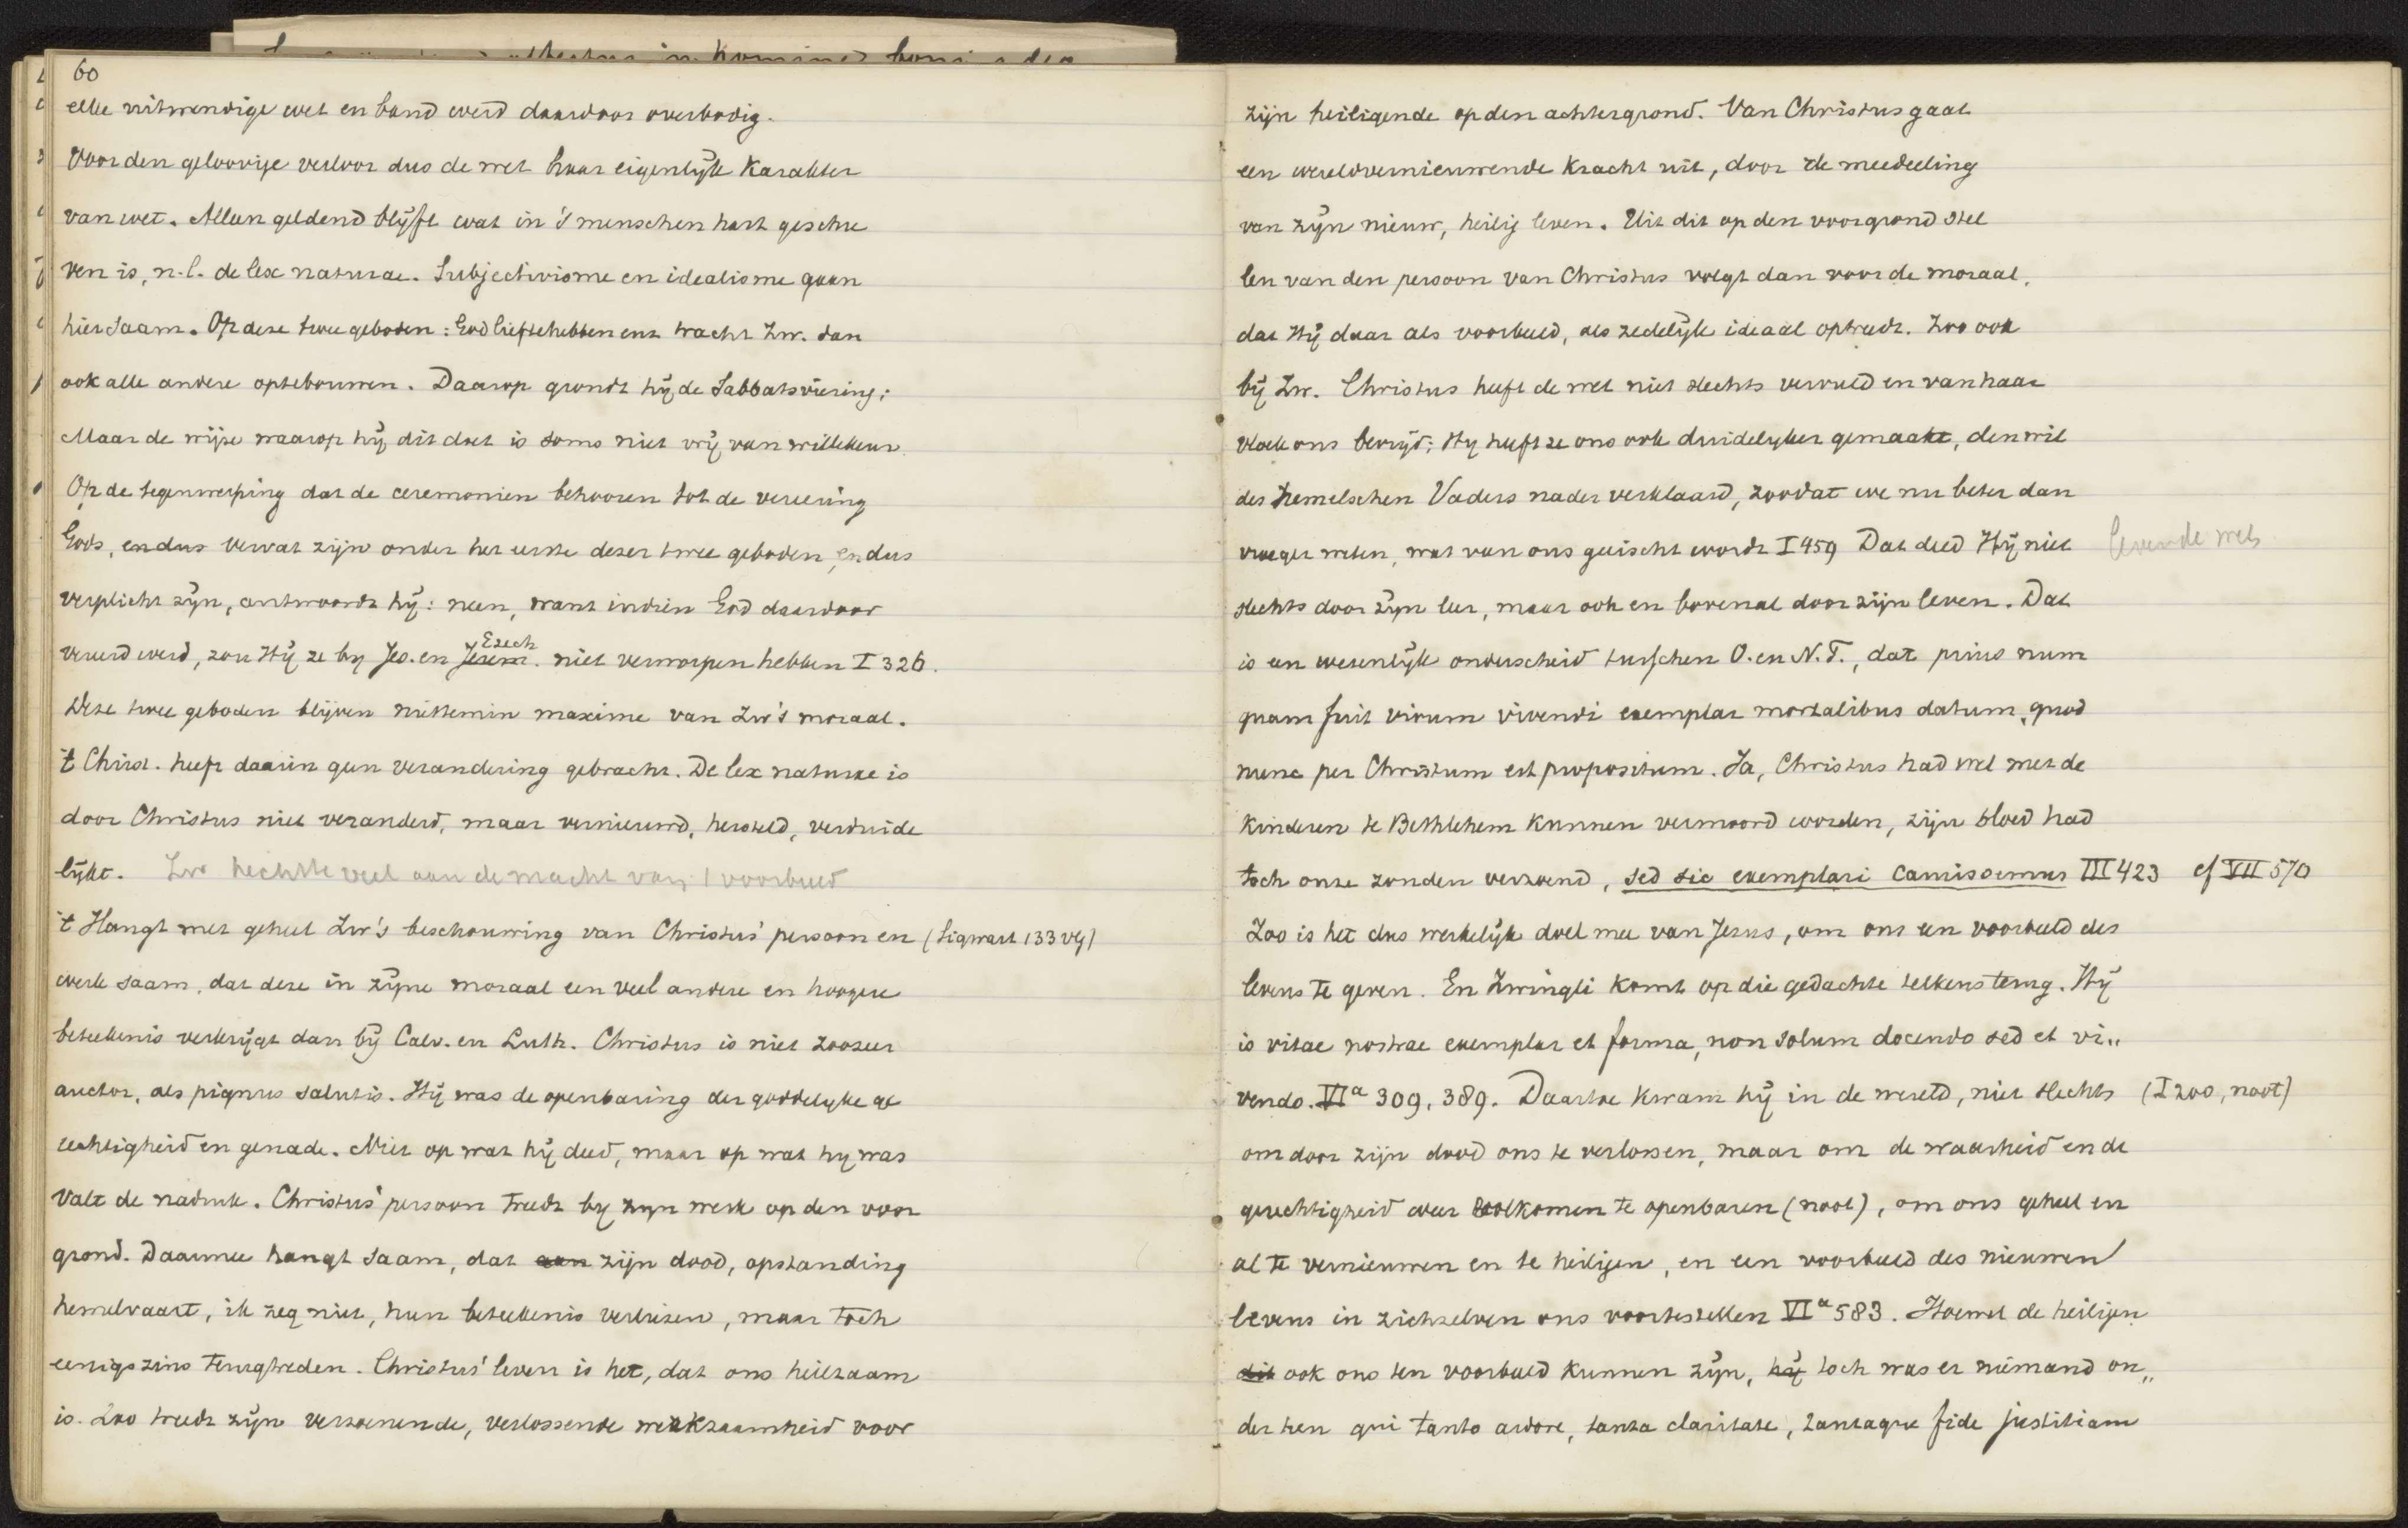 60
elke uitwendige wet en band werd daardoor overbodig.
Voor den geloovige verloor dus de wet haar eigenlijk karakter
van wet. Alleen geldend blijft wat in 's menschen hart geschre
ven is, n.l. de lex naturae. Subjectivisme en idealisme gaan
hier saam. Op deze twee geboden: God liefhebben enz tracht Zw. dan
ook alle andere optebouwen. Daarop grondt hij de Sabbatsviering;
Maar de wijze waarop hij dit doet is soms niet vrij van willekeur.
Op de tegenwerping dat de ceremonien behooren tot de vereering
Gods, en dus vervat zijn onder het eerste dezer twee geboden, en dus
verplicht zijn, antwoordt hij: neen, want indien God daardoor
Ezech
vereerd werd, zou Hij ze by Jes. en Jerem. niet verworpen hebben I 326.
Deze twee geboden blijven niettemin maxime van Zw's moraal.
't Christ. heeft daarin geen verandering gebracht. De lex naturae is
door Christus niet veranderd, maar vernieuwd, hersteld, verduide
lijkt. Zw hechtte veel aan de macht van 't voorbeeld
't Hangt met geheel Zw's beschouwing van Christus' persoon en (Sigwart 133 vg)
werk saam, dat deze in zijne moraal een veel andere en hoogere
beteekenis verkrijgt dan bij Calv. en Luth. Christus is niet zoozeer
auctor, als pignus salutis. Hij was de openbaring der goddelyke ge
rechtigheid en genade. Niet op wat hij deed, maar op wat hy was
valt de nadruk. Christus' persoon treedt by zyn werk op den voor
grond. Daarmee hangt saam, dat aan zijn dood, opstanding
hemelvaart, ik zeg niet, hun beteekenis verliezen, maar toch
eenigszins terugtreden. Christus' leven is het, dat ons heilzaam
is. Zoo treedt zijn verzoenende, verlossende werkzaamheid voor
zijn heiligende op den achtergrond. Van Christus gaat
een wereldvernieuwende kracht uit, door de meedeeling
van zijn nieuw, heilig leven. Uit dit op den voorgrond stel
len van den persoon van Christus volgt dan voor de moraal,
dat Hij daar als voorbeeld, als zedelijk ideaal optreedt. Zoo ook
bij Zw. Christus heeft de wet niet slechts vervuld en van haar
vloek ons bevrijd; Hy heeft ze ons ook duidelyker gemaakt, den wil
des hemelschen Vaders nader verklaard, zoodat we nu beter dan
vroeger weten, wat van ons geëischt wordt I 459 Dat deed Hij niet levende wet
slechts door zijn leer, maar ook en bovenal door zijn leven. Dat
is een wezenlijk onderscheid tusschen O. en N.T., dat prius num
quam fuit vivum vivendi exemplar mortalibus datum, quod
nunc per Christum est propositum. Ja, Christus had wel met de
kinderen te Bethlehem kunnen vermoord worden, zijn bloed had
toch onze zonden verzoend, sed sic exemplari caruissemus III 423 cf VII 570
Zoo is het dus werkelijk doel mee van Jezus, om ons een voorbeeld des
levens te geven. En Zwingli komt op die gedachte telkens terug. Hij
is vitae nostrae exemplar et forma, non solum docendo sed et vi„
vendo. VIa 309, 389. Daartoe kwam hij in de wereld, niet slechts (I 200, noot)
om door zijn dood ons te verlossen, maar om de waarheid en de
gerechtigheid weer volkomen te openbaren (noot), om ons geheel en
al te vernieuwen en te heiligen, en een voorbeeld des nieuwen
levens in zichzelven ons voortestellen VIa 583. Hoewel de heiligen
dit ook ons ten voorbeeld kunnen zijn, hij toch was er niemand on„
der hen qui tanto ardore, tanta claritate, tantaque fide justitiam